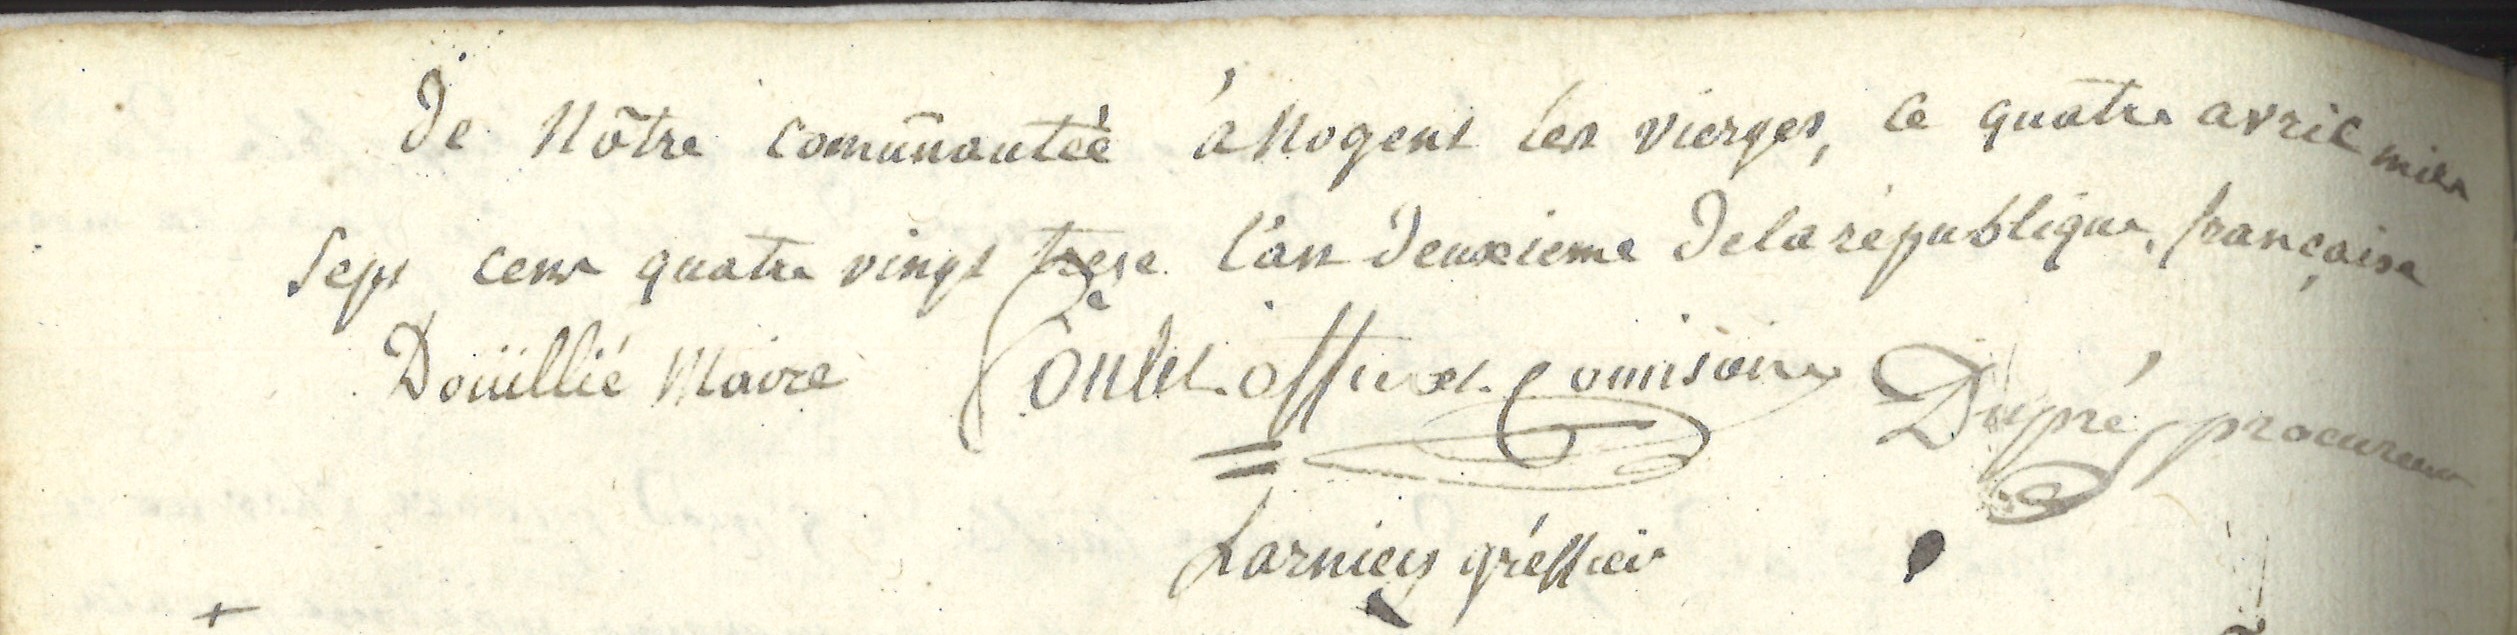 De Nôtre com̃unautéé à Nogent les vierges, ce quatre avril mile
Sept cens quatre vingt trese l'an deuxieme de la république française
Doüillié Maire Coulet officier Comisaire Dupré procureur
Larnier gréffier